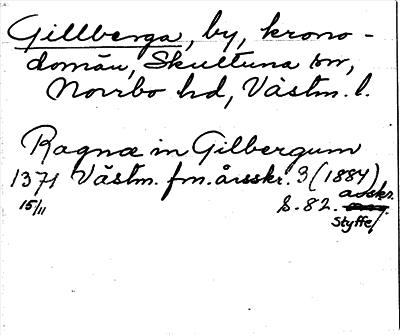 Gillberga, by, krono-
domän, Skultuna sn,
Norrbo hd, Västm. l.
Ragnæ in Gilbergum
1371 Västm. fm. årsskr. 3 (1884)
15/11 S. 82. avskr.
Styffe.